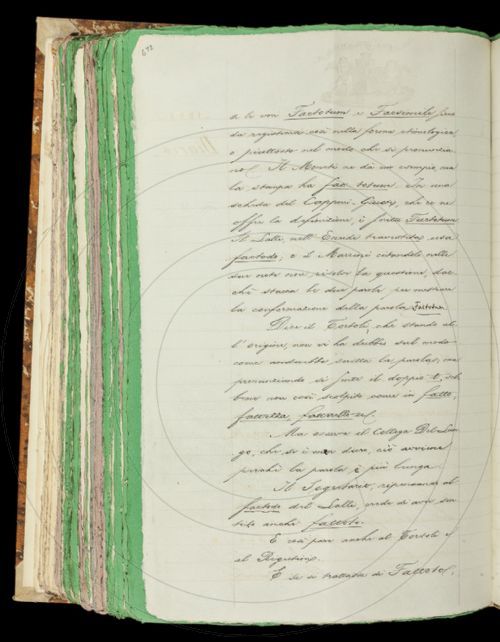 672
se le voci Factotum e Facsimile sia
da registrare così nella forma etimologica
o piuttosto nel modo che si pronuncia
no. Il Monti ne dà un esempio, ma
la stampa ha fac totum. In una
scheda del Capponi, che ce ne
offre la definizione, è scritto Factotum
Il Lalli, nell' Eneide travestita, usa
factode, e il citandolo nelle
sue note non la questione, dac
chè stacca le due parole per mostrare
la conformazione della parola Factotum
Dice il Tortoli, che stando al
l'origine, non vi ha dubbio sul modo
come andrebbe scritta la parola, ma
pronunziando si sente il doppio t, seb
bene non così scolpito come in fatto,
fattezza,
Ma osserva il Collega Del Lun
go, che se è men duro, ciò avviene
perchè la parola è più lunga.
Il Segretario, ripensando al
factode del Lalli, crede di aver sen
tito anche
E così pare anche al Tortoli e
al
E se si trattasse di